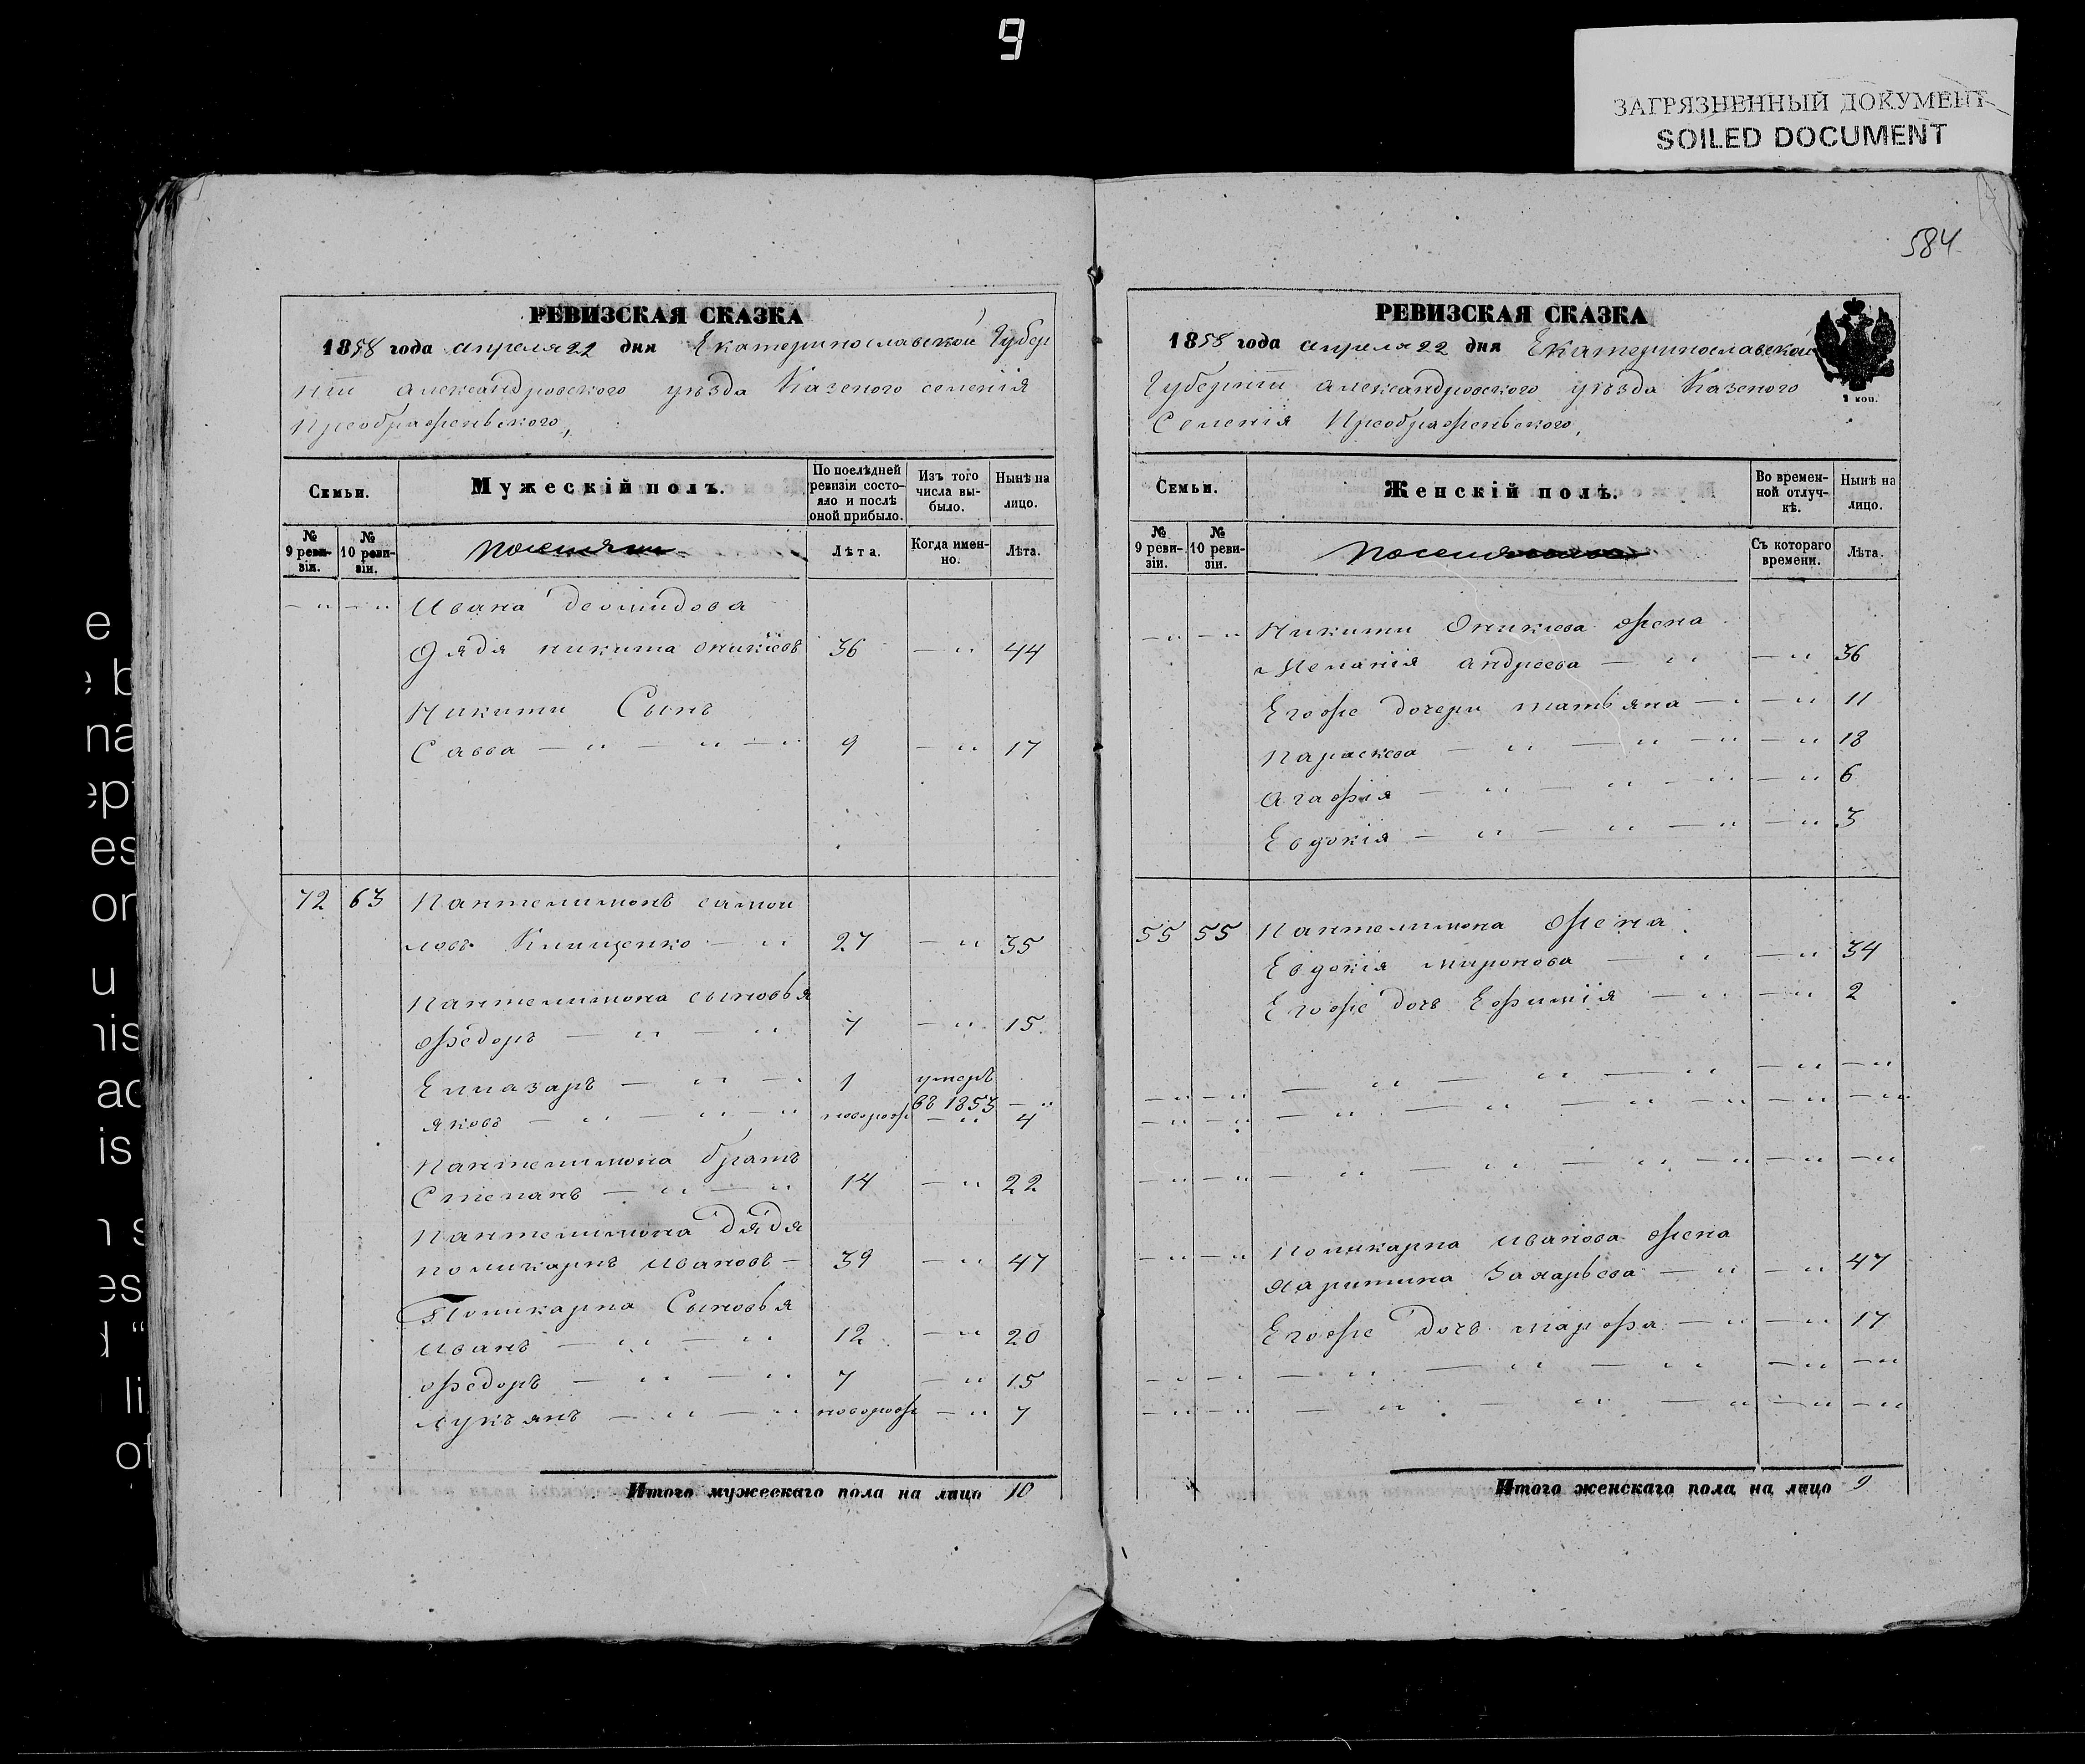 9
ЗАГРЯЗНЕННЫЙ ДОКУМЕНТ
SOILED DOCUMENT
584
РЕВИЗСКАЯ СКАЗКА
1858 года апреля 22 дня Екатеринославской Губер
нии александровского уезда Казеного селенія
Преображеньского,
Семьи.
Мужескій полъ.
По послѣдней ревизіи состояло и послѣ оной прибыло.
Изъ того числа выбыло.
Нынѣ на лицо.
№ 9 ревизіи.
№ 10 ревизіи.
поселяни
Лѣта.
Когда именно.
Лѣта.
Ивана Деомидова
Дядя никита оникіевъ 36 44
Никити Сынъ
Савва 9 17
72 63 Пантелимонъ самои
ловъ Клищенко 27 35
Пантелимона сыновья
Федоръ 7 15
Елиазаръ 1 умеръ
въ 1853
Яковъ новорож 4
Пантелимона братъ
Степанъ 14 22
Пантелимона Дядя
поликарпъ Ивановъ 39 47
Поликарпа Сыновья
Иванъ 12 20
Федоръ 7 15
Лукъянъ новорож 7
Итого мужескаго пола на лицо 10
РЕВИЗСКАЯ СКАЗКА
1858 года апреля 22 дня Екатеринославской
Губерніи александровского уезда Казеного
Селенія Преображеньского,
2 коп.
Семьи.
Женскій полъ.
Во временной отлучкѣ.
Нынѣ на лицо.
№ 9 ревизіи.
№ 10 ревизіи.
Съ котораго времени.
Лѣта.
Никити Оникиева жена
Меланія андреева 36
Егоже дочери татьяна 11
Параскева 18
Агафія 6
Евдокія 3
55 55 Пантелимона жена
Евдокія миронова 34
Егоже дочь Ефимія 2
Поликарпа иванова жена
Харитина Захарьева 47
Егоже Дочь марфа 17
Итого женскаго пола на лицо 9